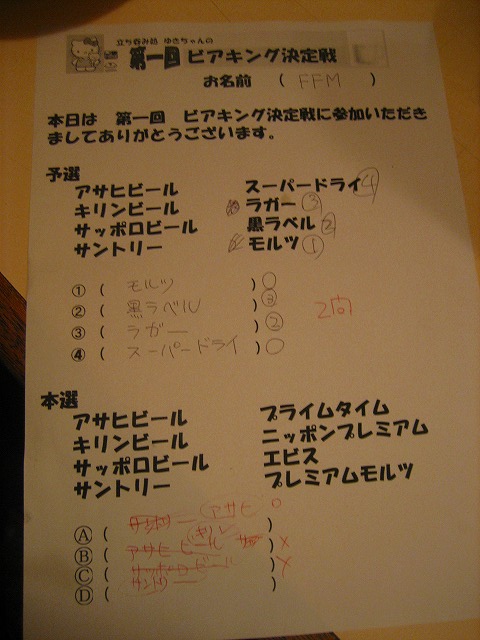 立ち呑み処 ゆきちゃんの
第一回 ビアキング決定戦
お名前 ( FFM )
本日は 第一回 ビアキング決定戦に参加いただき
ましてありがとうございます。
予選
アサヒビール スーパードライ ④
キリンビール ラガー ③
サッポロビール 黒ラベル ②
サントリー モルツ ①
① ( モルツ ) ○
② ( 黒ラベル ) ③
③ ( ラガー ) ②
④ ( スーパードライ ) ○
2向
本選
アサヒビール プライムタイム
キリンビール ニッポンプレミアム
サッポロビール エビス
サントリー プレミアムモルツ
Ⓐ ( アサヒ ) ○
Ⓑ ( アサヒビール ) ×
Ⓒ ( サッポロビール ) ×
Ⓓ ( )